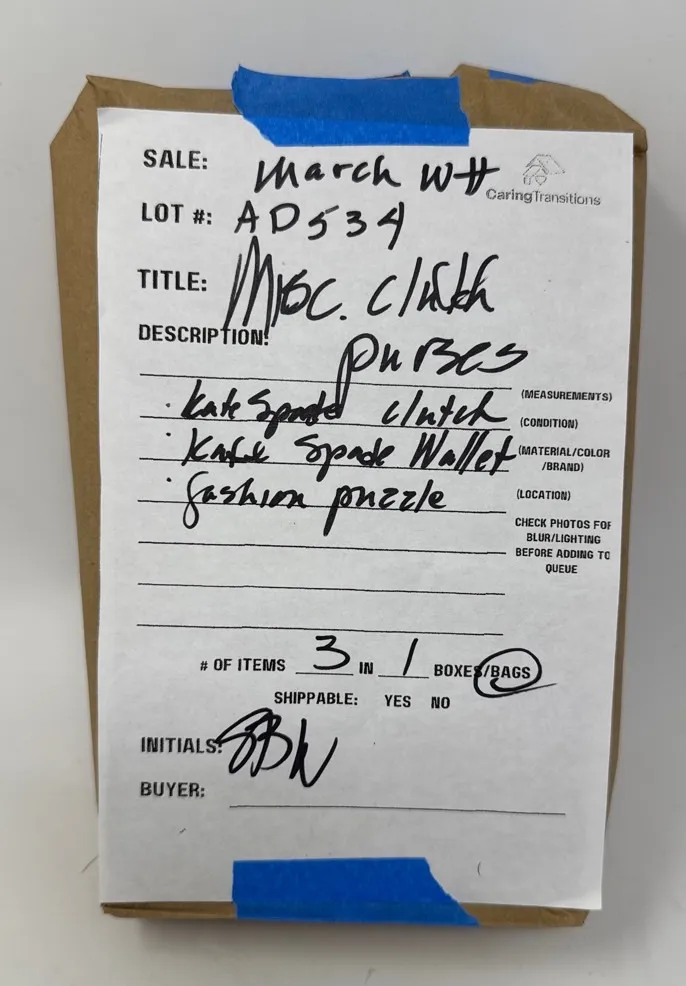 SALE: March WH
CaringTransitions
LOT #: AD534
TITLE: Misc. Clutch
DESCRIPTION: purses
(MEASUREMENTS)
· Kate Spade clutch (CONDITION)
· Kate Spade Wallet (MATERIAL/COLOR
/BRAND)
· fashion puzzle (LOCATION)
CHECK PHOTOS FOR
BLUR/LIGHTING
BEFORE ADDING TO
QUEUE
# OF ITEMS 3 IN 1 BOXES/BAGS
SHIPPABLE: YES NO
INITIALS: SBW
BUYER: